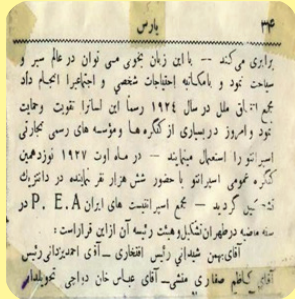 ۳۴ پارس
برابری می‌کند — با این زبان بخوبی می توان در عالم سیر و
سیاحت نمود و بامکاتبه احتیاجات شخصی و اجتماعیرا انجام داد
مجمع اتفاق ملل در سال ۱۹۲۴ رسماً این لسانرا تقویت وحمایت
نمود و امروز در بسیاری از کنگره ها ومؤسسه های رسمی تجارتی
اسپرانتو را استعمال مینمایند — در ماه اوت ۱۹۲۷ نوزدهمین
کنگره عمومی اسپرانتو با حضور شش هزار نفر نماینده در دانتزیک
گردید — مجمع اسپرانتیست های ایران P. E. A در
سنه ماضیه در طهران تشکیل و هیئت رئیسه آن از این قرار است:
آقای بهمن شیدانی رئیس افتخاری — آقای احمد یزدانی رئیس
آقای کاظم صفاری منشی — آقای عباس خان دواجی تحویلدار